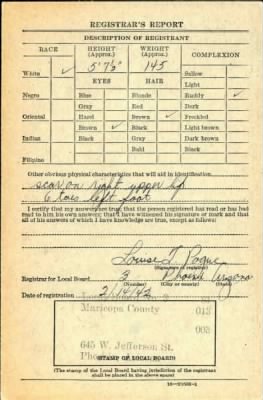 REGISTRAR'S REPORT
DESCRIPTION OF REGISTRANT
RACE HEIGHT (Approx.) WEIGHT (Approx.) COMPLEXION
5' 7½" 145 Sallow
White ✓ EYES HAIR Light
Negro Blue Blonde Ruddy ✓
Gray Red Dark
Oriental Hazel Brown ✓ Freckled
Brown ✓ Black Light brown
Indian Black Gray Dark brown
Bald Black
Filipino
Other obvious physical characteristics that will aid in identification
scar on right upper lip
6 toes left foot
I certify that my answers are true; that the person registered has read or has had
read to him his own answers; that I have witnessed his signature or mark and that
all of his answers of which I have knowledge are true, except as follows:
Louise T. Pogue
(Signature of registrar)
Registrar for Local Board 3 Phoenix Arizona
(Number) (City or county) (State)
Date of registration 2/16/42
Maricopa County 013
003
645 W. Jefferson St.
STAMP OF LOCAL BOARD
(The stamp of the Local Board having jurisdiction of the registrant
shall be placed in the above space)